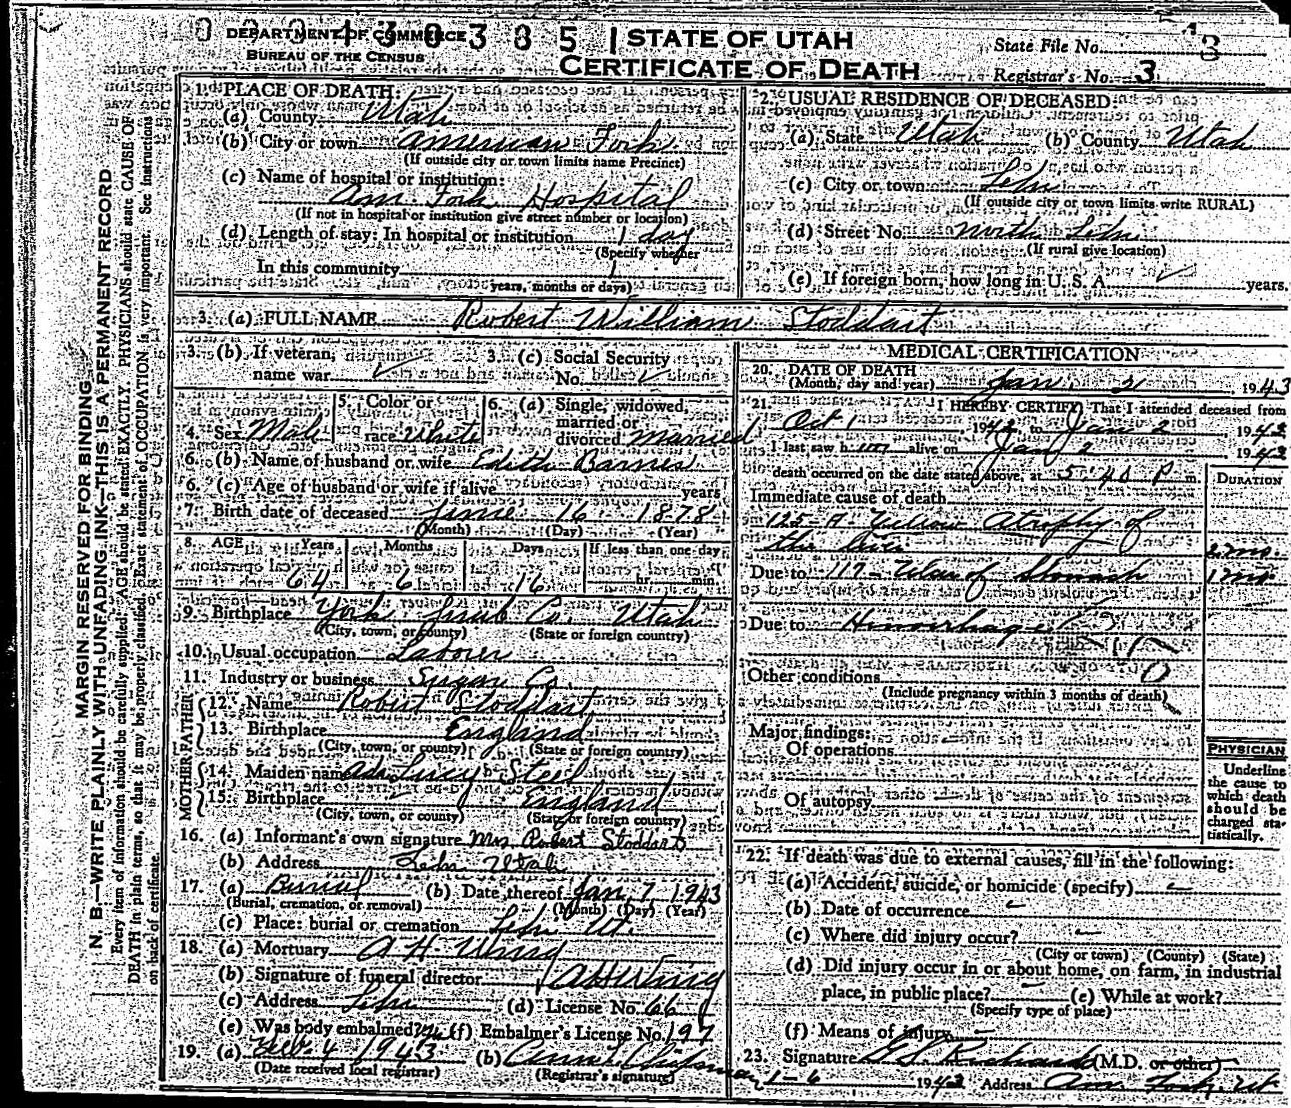 DEPARTMENT OF COMMERCE
BUREAU OF THE CENSUS
STATE OF UTAH
CERTIFICATE OF DEATH
State File No. 3
Registrar's No. 3
MARGIN RESERVED FOR BINDING
N. B.—WRITE PLAINLY WITH UNFADING INK—THIS IS A PERMANENT RECORD
Every item of information should be carefully supplied. AGE should be stated EXACTLY. PHYSICIANS should state CAUSE OF
DEATH in plain terms, so that it may be properly classified. Exact statement of OCCUPATION is very important. See instructions
on back of certificate.
1. PLACE OF DEATH:
(a) County Utah
(b) City or town American Fork
(If outside city or town limits name Precinct)
(c) Name of hospital or institution:
Am. Fork Hospital
(If not in hospital or institution give street number or location)
(d) Length of stay: In hospital or institution 1 day
(Specify whether
In this community 1
years, months or days)
2. USUAL RESIDENCE OF DECEASED:
(a) State Utah (b) County Utah
(c) City or town Lehi
(If outside city or town limits write RURAL)
(d) Street No. North Lehi
(If rural give location)
(e) If foreign born, how long in U. S. A. years.
3. (a) FULL NAME Robert William Stoddart
3. (b) If veteran,
name war
3. (c) Social Security
No.
4. Sex Male
5. Color or
race White
6. (a) Single, widowed,
married or
divorced married
6. (b) Name of husband or wife Edith Barnes
6. (c) Age of husband or wife if alive years
7. Birth date of deceased June 16 1878
(Month) (Day) (Year)
8. AGE Years Months Days If less than one day
64 6 16 hr. min.
9. Birthplace York Juab Co. Utah
(City, town, or county) (State or foreign country)
10. Usual occupation Laborer
11. Industry or business Sugar Co.
FATHER
12. Name Robert Stoddart
13. Birthplace England
(City, town, or county) (State or foreign country)
MOTHER
14. Maiden name Ada Lucy Steel
15. Birthplace England
(City, town, or county) (State or foreign country)
16. (a) Informant's own signature Mrs. Robert Stoddart
(b) Address Lehi Utah
17. (a) Burial (b) Date thereof Jan 7 1943
(Burial, cremation, or removal) (Month) (Day) (Year)
(c) Place: burial or cremation Lehi Ut.
18. (a) Mortuary A H Wing
(b) Signature of funeral director A H Wing
(c) Address Lehi (d) License No. 66
(e) Was body embalmed? (f) Embalmer's License No. 197
19. (a) 4 1943 (b)
(Date received local registrar) (Registrar's signature)
MEDICAL CERTIFICATION
20. DATE OF DEATH
(Month, day and year) Jan. 2 1943
21. I HEREBY CERTIFY, That I attended deceased from
Oct 1 1942 to Jan 2 1943
I last saw him alive on Jan 2 1943
death occurred on the date stated above, at 5:40 P m.
DURATION
Immediate cause of death
125-A Yellow Atrophy of
the liver 2 mo.
Due to 117 - Ulcer of Stomach 1 mo
Due to Hemorrhage
Other conditions
(Include pregnancy within 3 months of death)
Major findings:
Of operations
Of autopsy
PHYSICIAN
Underline
the cause to
which death
should be
charged sta-
tistically.
22. If death was due to external causes, fill in the following:
(a) Accident, suicide, or homicide (specify)
(b) Date of occurrence
(c) Where did injury occur?
(City or town) (County) (State)
(d) Did injury occur in or about home, on farm, in industrial
place, in public place? (e) While at work?
(Specify type of place)
(f) Means of injury
23. Signature (M.D. or other)
1-6 1943 Address Am. Fork, Ut